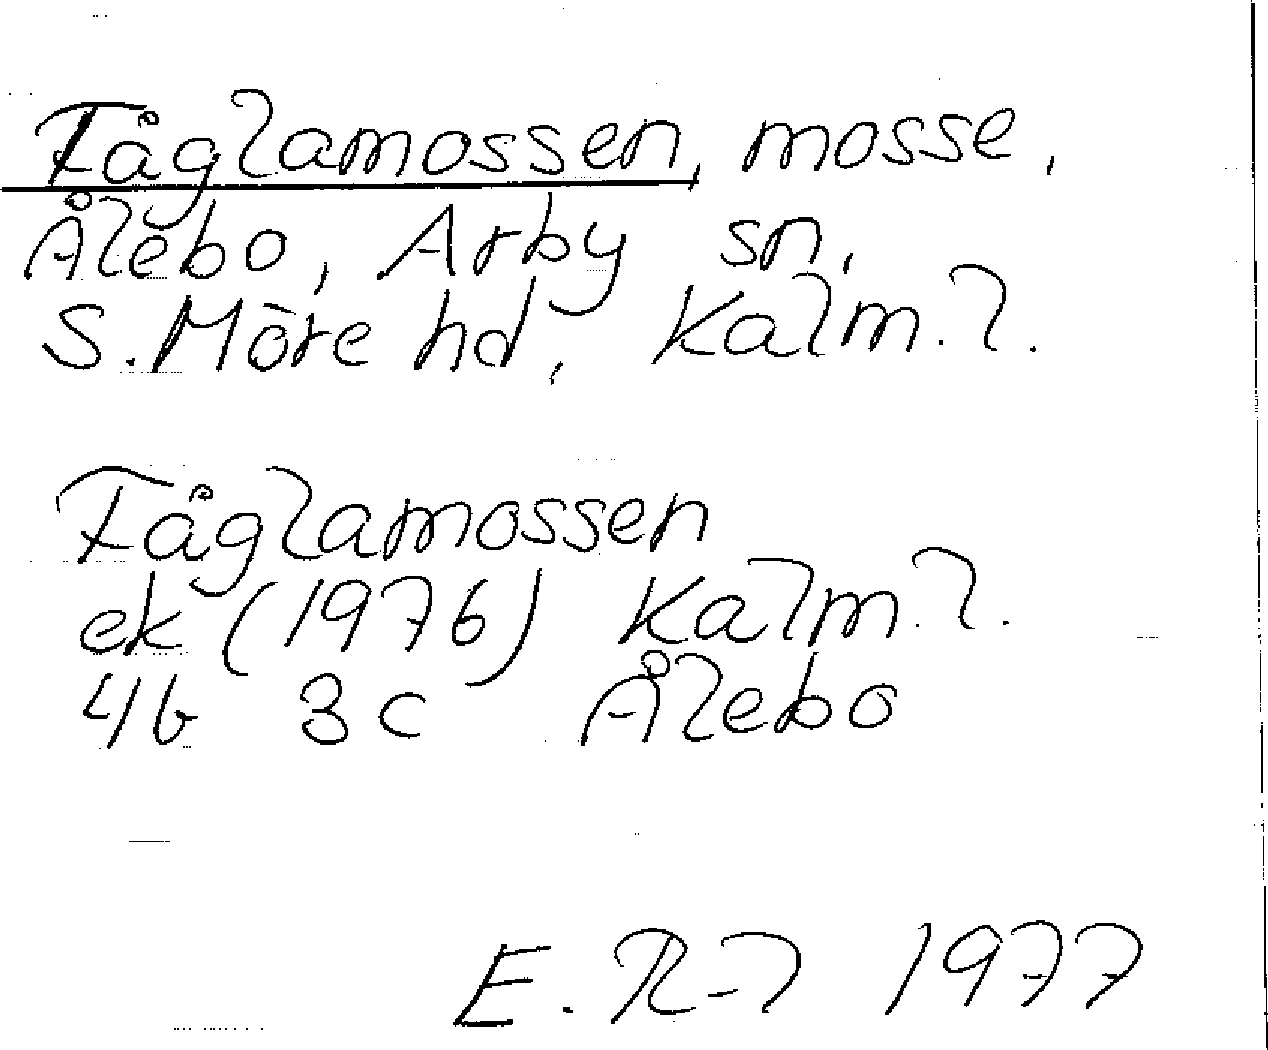 Fåglamossen, mosse,
Ålebo, Arby sn,
S. Möre hd, Kalm. l.
Fåglamossen
ek (1976) Kalm. l.
4b 3c Ålebo
E. R-l 1977